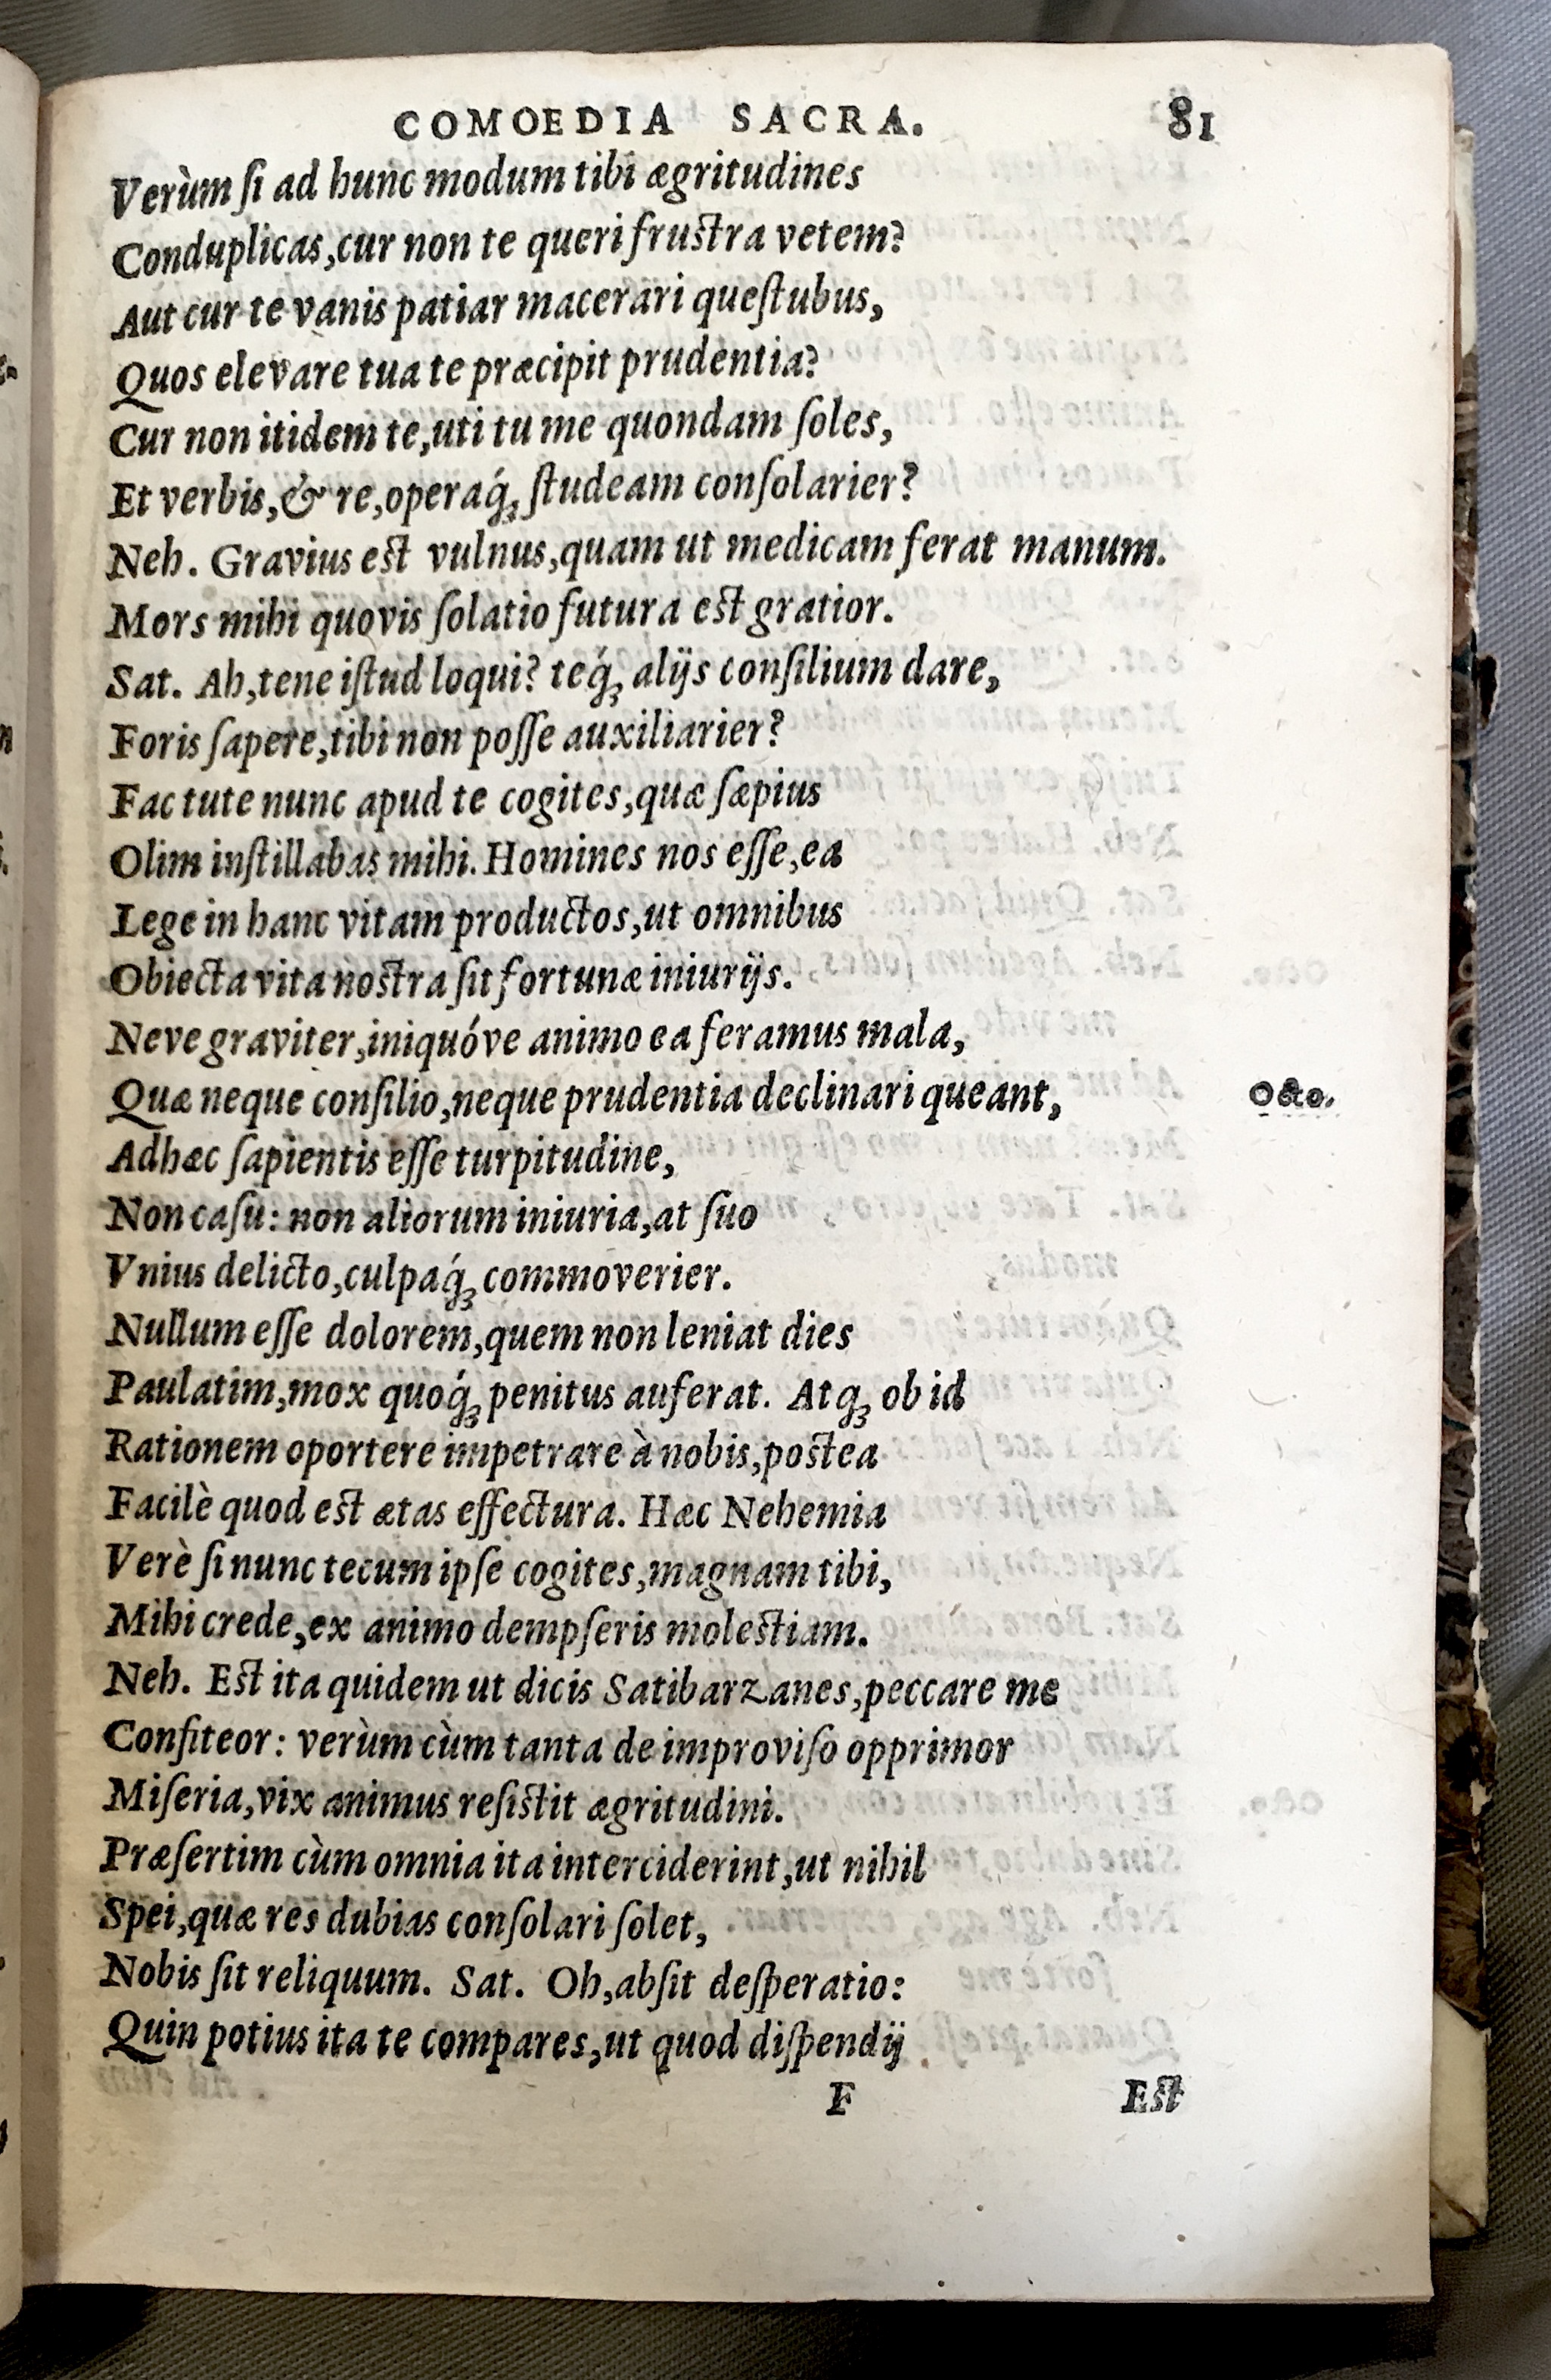 COMOEDIA SACRA. 81
Verùm ſi ad hunc modum tibi ægritudines
Conduplicas,cur non te queri fruſtra vetem?
Aut cur te vanis patiar macerari queſtubus,
Quos elevare tua te præcipit prudentia?
Cur non itidem te,uti tu me quondam ſoles,
Et verbis,& re,operaq́; ſtudeam conſolarier?
Neh. Gravius eſt vulnus,quam ut medicam ferat manum.
Mors mihi quovis ſolatio futura eſt gratior.
Sat. Ah,tene iſtud loqui? teq́; alijs conſilium dare,
Foris ſapere,tibi non poſſe auxiliarier?
Fac tute nunc apud te cogites,quæ ſæpius
Olim inſtillabas mihi. Homines nos eſſe,ea
Lege in hanc vitam productos,ut omnibus
Obiecta vita noſtra ſit fortunæ iniurijs.
Neve graviter,iniquóve animo ea feramus mala,
Quæ neque conſilio,neque prudentia declinari queant, Octo.
Adhæc ſapientis eſſe turpitudine,
Non caſu: non aliorum iniuria,at ſuo
Vnius delicto,culpaq́; commoverier.
Nullum eſſe dolorem,quem non leniat dies
Paulatim,mox quoq́; penitus auferat. Atq; ob id
Rationem oportere impetrare à nobis,poſtea
Facilè quod eſt ætas effectura. Hæc Nehemia
Verè ſi nunc tecum ipſe cogites,magnam tibi,
Mihi crede,ex animo dempſeris moleſtiam.
Neh. Eſt ita quidem ut dicis Satibarzanes,peccare me
Confiteor: verùm cùm tanta de improviſo opprimor
Miſeria,vix animus reſiſtit ægritudini.
Præſertim cùm omnia ita interciderint,ut nihil
Spei,quæ res dubias conſolari ſolet,
Nobis ſit reliquum. Sat. Oh,abſit deſperatio:
Quin potius ita te compares,ut quod diſpendij
F Eſt